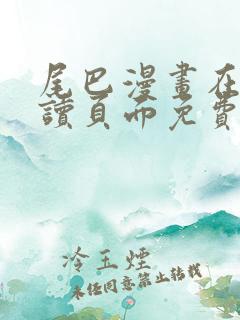 尾巴漫畫在
讀頁面免費
冷玉煙
未经同意禁止转载